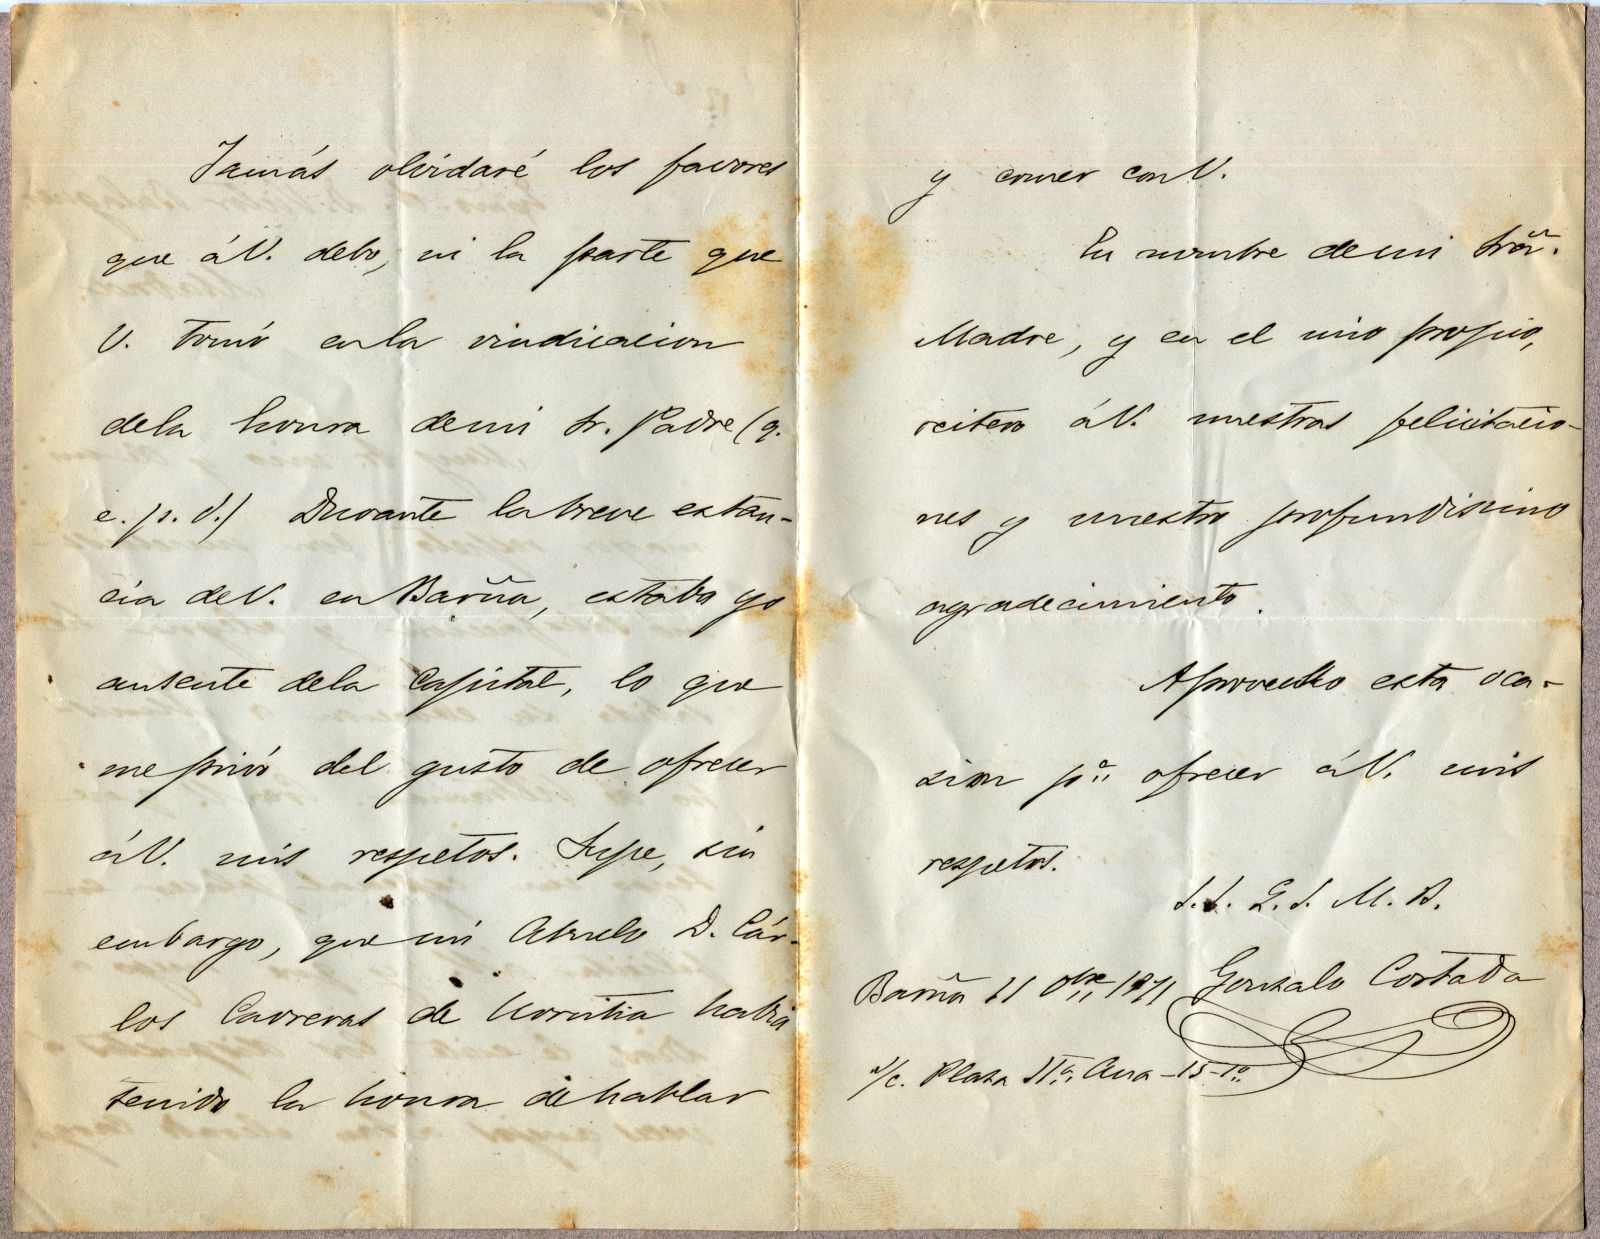 Jamás olvidaré los favores
que á V. debo, ni la parte que
V. tomó en la vindicacion
dela honra demi Sr. Padre (q.
e. p. d.) Durante la breve estan-
cia de V. en Barña, estaba yo
ausente dela Capital, lo que
me privó del gusto de ofrecer
á V. mis respetos. Supe, sin
embargo, que mi Abuelo D. Cár-
los Carreras de Urrutia habia
tenido la honra de hablar
y comer con V.
En nombre de mi Srã.
Madre, y en el mio propio,
reitero á V. nuestras felicitacio-
nes y nuestro profundisimo
agradecimiento.
Aprovecho esta oca-
sion pª ofrecer á V. mis
respetos.
S. S. Q. S. M. B.
Barña 11 Obre 1871 Gonzalo Cortada
s/c. Plaza Stª Ana - 15 - 1º